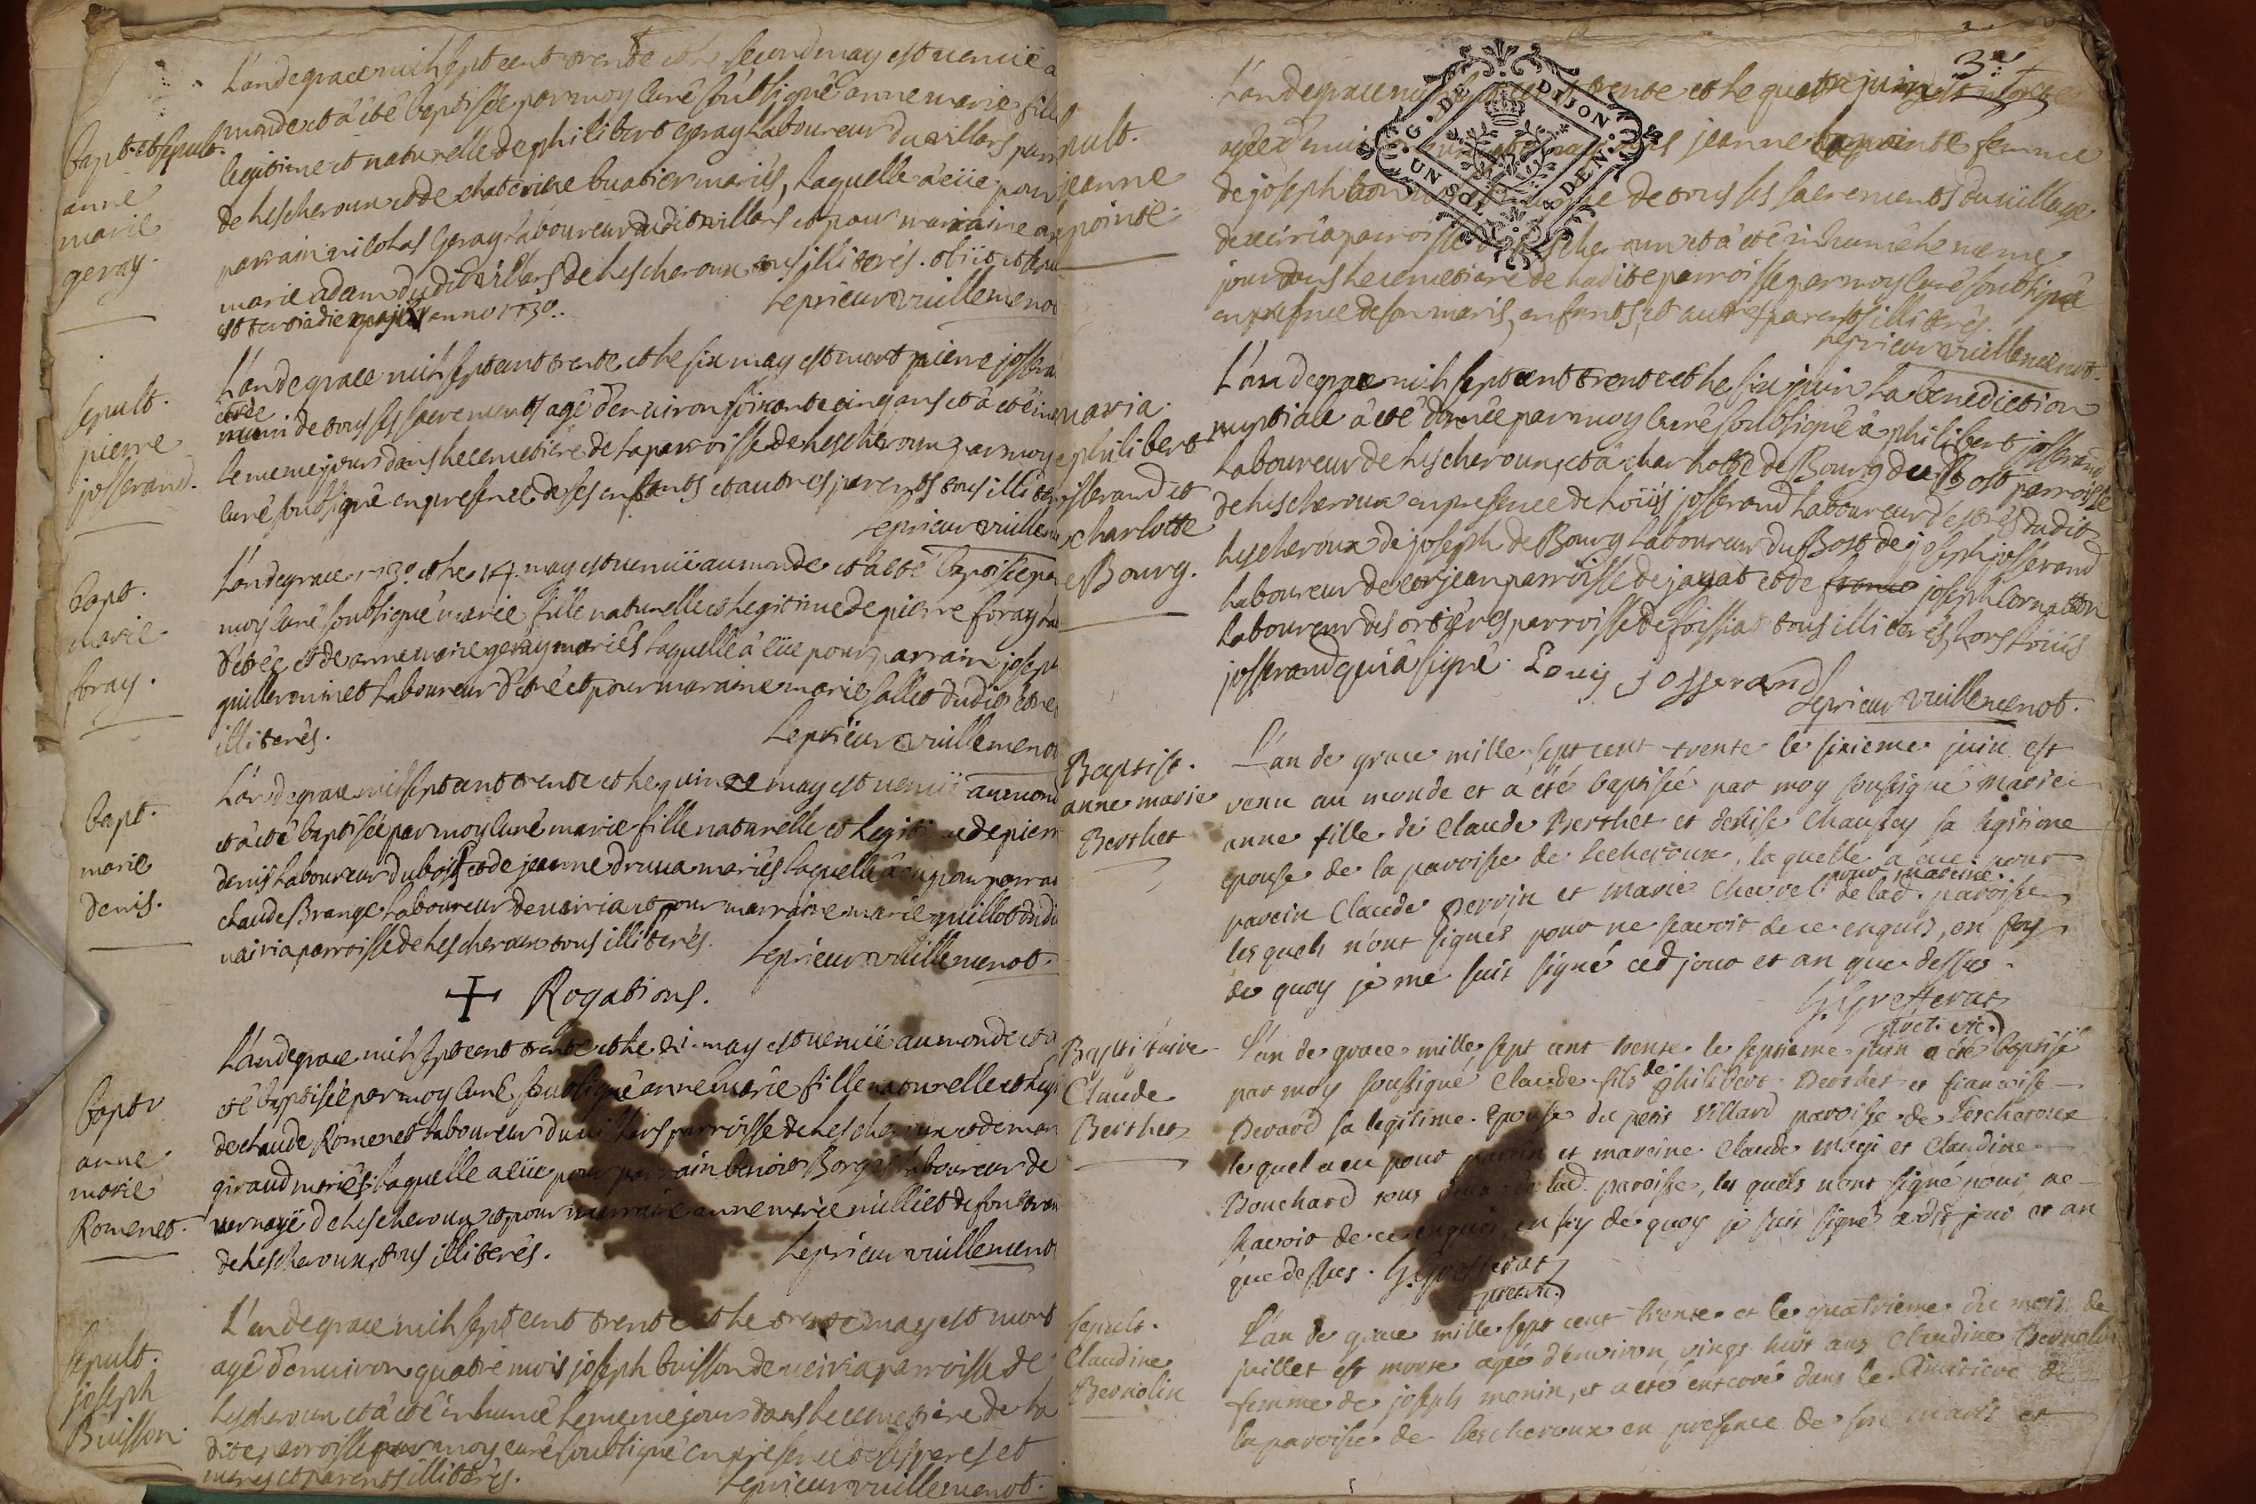 L'an de grace mil sept cent trente et le second may est venüe a
monde et a été baptisée par moy curé soubsigné anne marie fille
Bapt. et sepult.
anne
marie
geray.
legitime et naturelle de philibert geray laboureur du villars parr
de lescheroux et de chaterine buatier mariés, laquelle a eüe pour
parrain nicolas geray laboureur dudit villars et pour marraine an
marie adam dudit villars de lescheroux tous illiterés. obiit et hu
est tertia die maji anno 1730.
le prieur vuillemenot
L'an de grace mil sept cent trente et le six may est mort pierre jossera
sepult.
pierre
josserand.
muni de tous ses sacrements agé d'environ soixante cinq ans et a été in
le meme jour dans le cemetiére de la parroisse de lescheroux par moy
curé soubsigné en presence de ses enfants et autres parents tous illiter
le prieur vuillem
Bapt.
marie
foray.
L'an de grace 1730 et le 14 may est venüe au monde et a été baptisée pa
moy curé soubsigné marie fille naturelle et legitime de pierre foray la
d'etrée et de anne marie geray mariés laquelle a eüe pour parrain joseph
guilleminet laboureur d'etré et pour maraine marie sallet dudit etré
illiterés.
le prieur vuillemeno
Bapt.
marie
denis.
L'an de grace mil sept cent trente et le quinze may est venüe au mond
et a été baptisée par moy curé marie fille naturelle et legitime de pierr
denis laboureur du bost et de jeanne druna mariés laquelle a eu pour parrai
claude Brange laboureur de vairia et pour marraine marie guillot dudi
vairia parroisse de lescheroux tous illiterés.
le prieur vuillemenot.
+ Rogations.
Bapt.
anne
marie
Romenet.
L'an de grace mil sept cent trente et le 21 may est venüe au monde et a
eté baptisée par moy curé soubsigné anne marie fille naturelle et legi
de claude Romenet laboureur du villars parroisse de lescheroux et de mar
giraud mariés laquelle a eüe pour parrain benoit Borges laboureur de
vernaye de lescheroux et pour marraine anne marie milliet de fontron
de lescheroux, tous illiterés.
le prieur vuillemenot
Sepult.
joseph
Buisson.
L'an de grace mil sept cent trente et le trente may est mort
agé d'environ quatre mois joseph buisson de veiria parroisse de
lescheroux et a été inhumé le meme jour dans le cemetiére de la
dite parroisse par moy curé soubsigné en presence de ses peres et
meres et parents illiterés.
le prieur vuillemenot.
3e
G. DE DIJON. UN SOL DEN.
pult.
jeanne
lapointe.
L'an de grace trente et le quatre juin
agée d'envi jeanne lapointe femme
de joseph de tous ses sacrements du village
de veiria parroisse lescheroux et a été inhumée le meme
jour dans le cemetiére de ladite parroisse par moy curé soubsigné
en presence de son maris, enfants, et autres parents illiterés.
le prieur vuillemenot.
maria.
philibert
josserand et
charlotte
de Bourg.
L'an de grace mil sept cent trente et le six juin la benediction
nuptiale a été donnée par moy curé soubsigné a philibert josserand
laboureur de lescheroux, et a charlotte de Bourg du Bost parroisse
de lescheroux en presence de loüis josserand laboureur d'estrés dudit
lescheroux de joseph de Bourg laboureur du Bost de joseph josserand
laboureur de corjean parroisse de jayat et de joseph Cornaton
laboureur des ortiéres parroisse de foissiat tous illiterés, hors loüis
josserand qui a signé. Louis Josserand
le prieur vuillemenot.
Baptist.
anne marie
Berthet
L'an de grace mille sept cent trente le sixieme juin est
venu au monde et a été baptisée par moy soussigné marie
anne fille de Claude Berthet et denise chaussey sa legitime
epouse de la paroisse de lescheroux, la quelle a eue pour
parein Claude Perrin et marie chavel pour mareine de lad. paroisse
les quels n'ont signés pour ne scavoir de ce enquis, en foy
de quoy je me suis signé ced jour et an que dessus.
G. Grefferat
pret. vic.
Baptistaire
Claude
Berthet
L'an de grace mille sept cent trente le septieme juin a été baptisé
par moy soussigné Claude fils de philibert Berthet et francoise
Devard sa legitime epouse du petit villard paroisse de lescheroux
lequel a eu pour parein et mareine Claude et Claudine
Bouchard tous deux de lad. paroisse, les quels n'ont signé pour ne
scavoir de ce enquis, en foy de quoy je suis signé cedit jour et an
que dessus. G. Grefferat
pret. vic.
Sepult.
Claudine
Bernolin
L'an de grace mille sept cent trente et le quatrieme du mois de
juillet est morte agée d'environ vingt huit ans Claudine Bernolin
femme de joseph monin, et a été enterré dans le cimitiere de
la paroisse de lescheroux en presence de son maris et